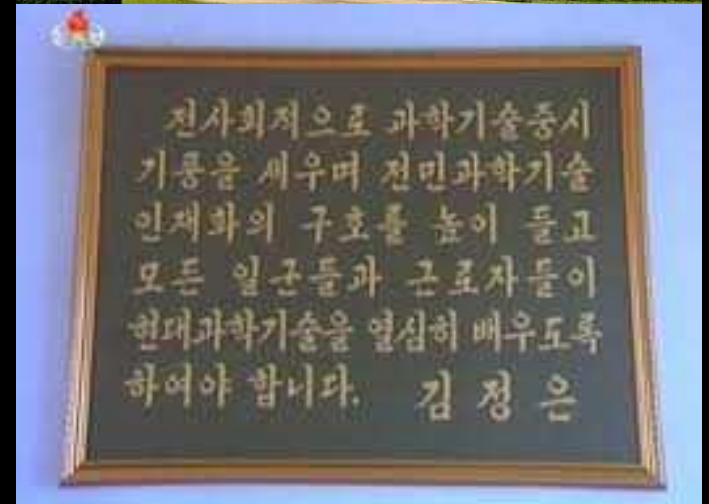 전사회적으로 과학기술중시
기풍을 세우며 전민과학기술
인재화의 구호를 높이 들고
모든 일군들과 근로자들이
현대과학기술을 열심히 배우도록
하여야 합니다. 김 정 은